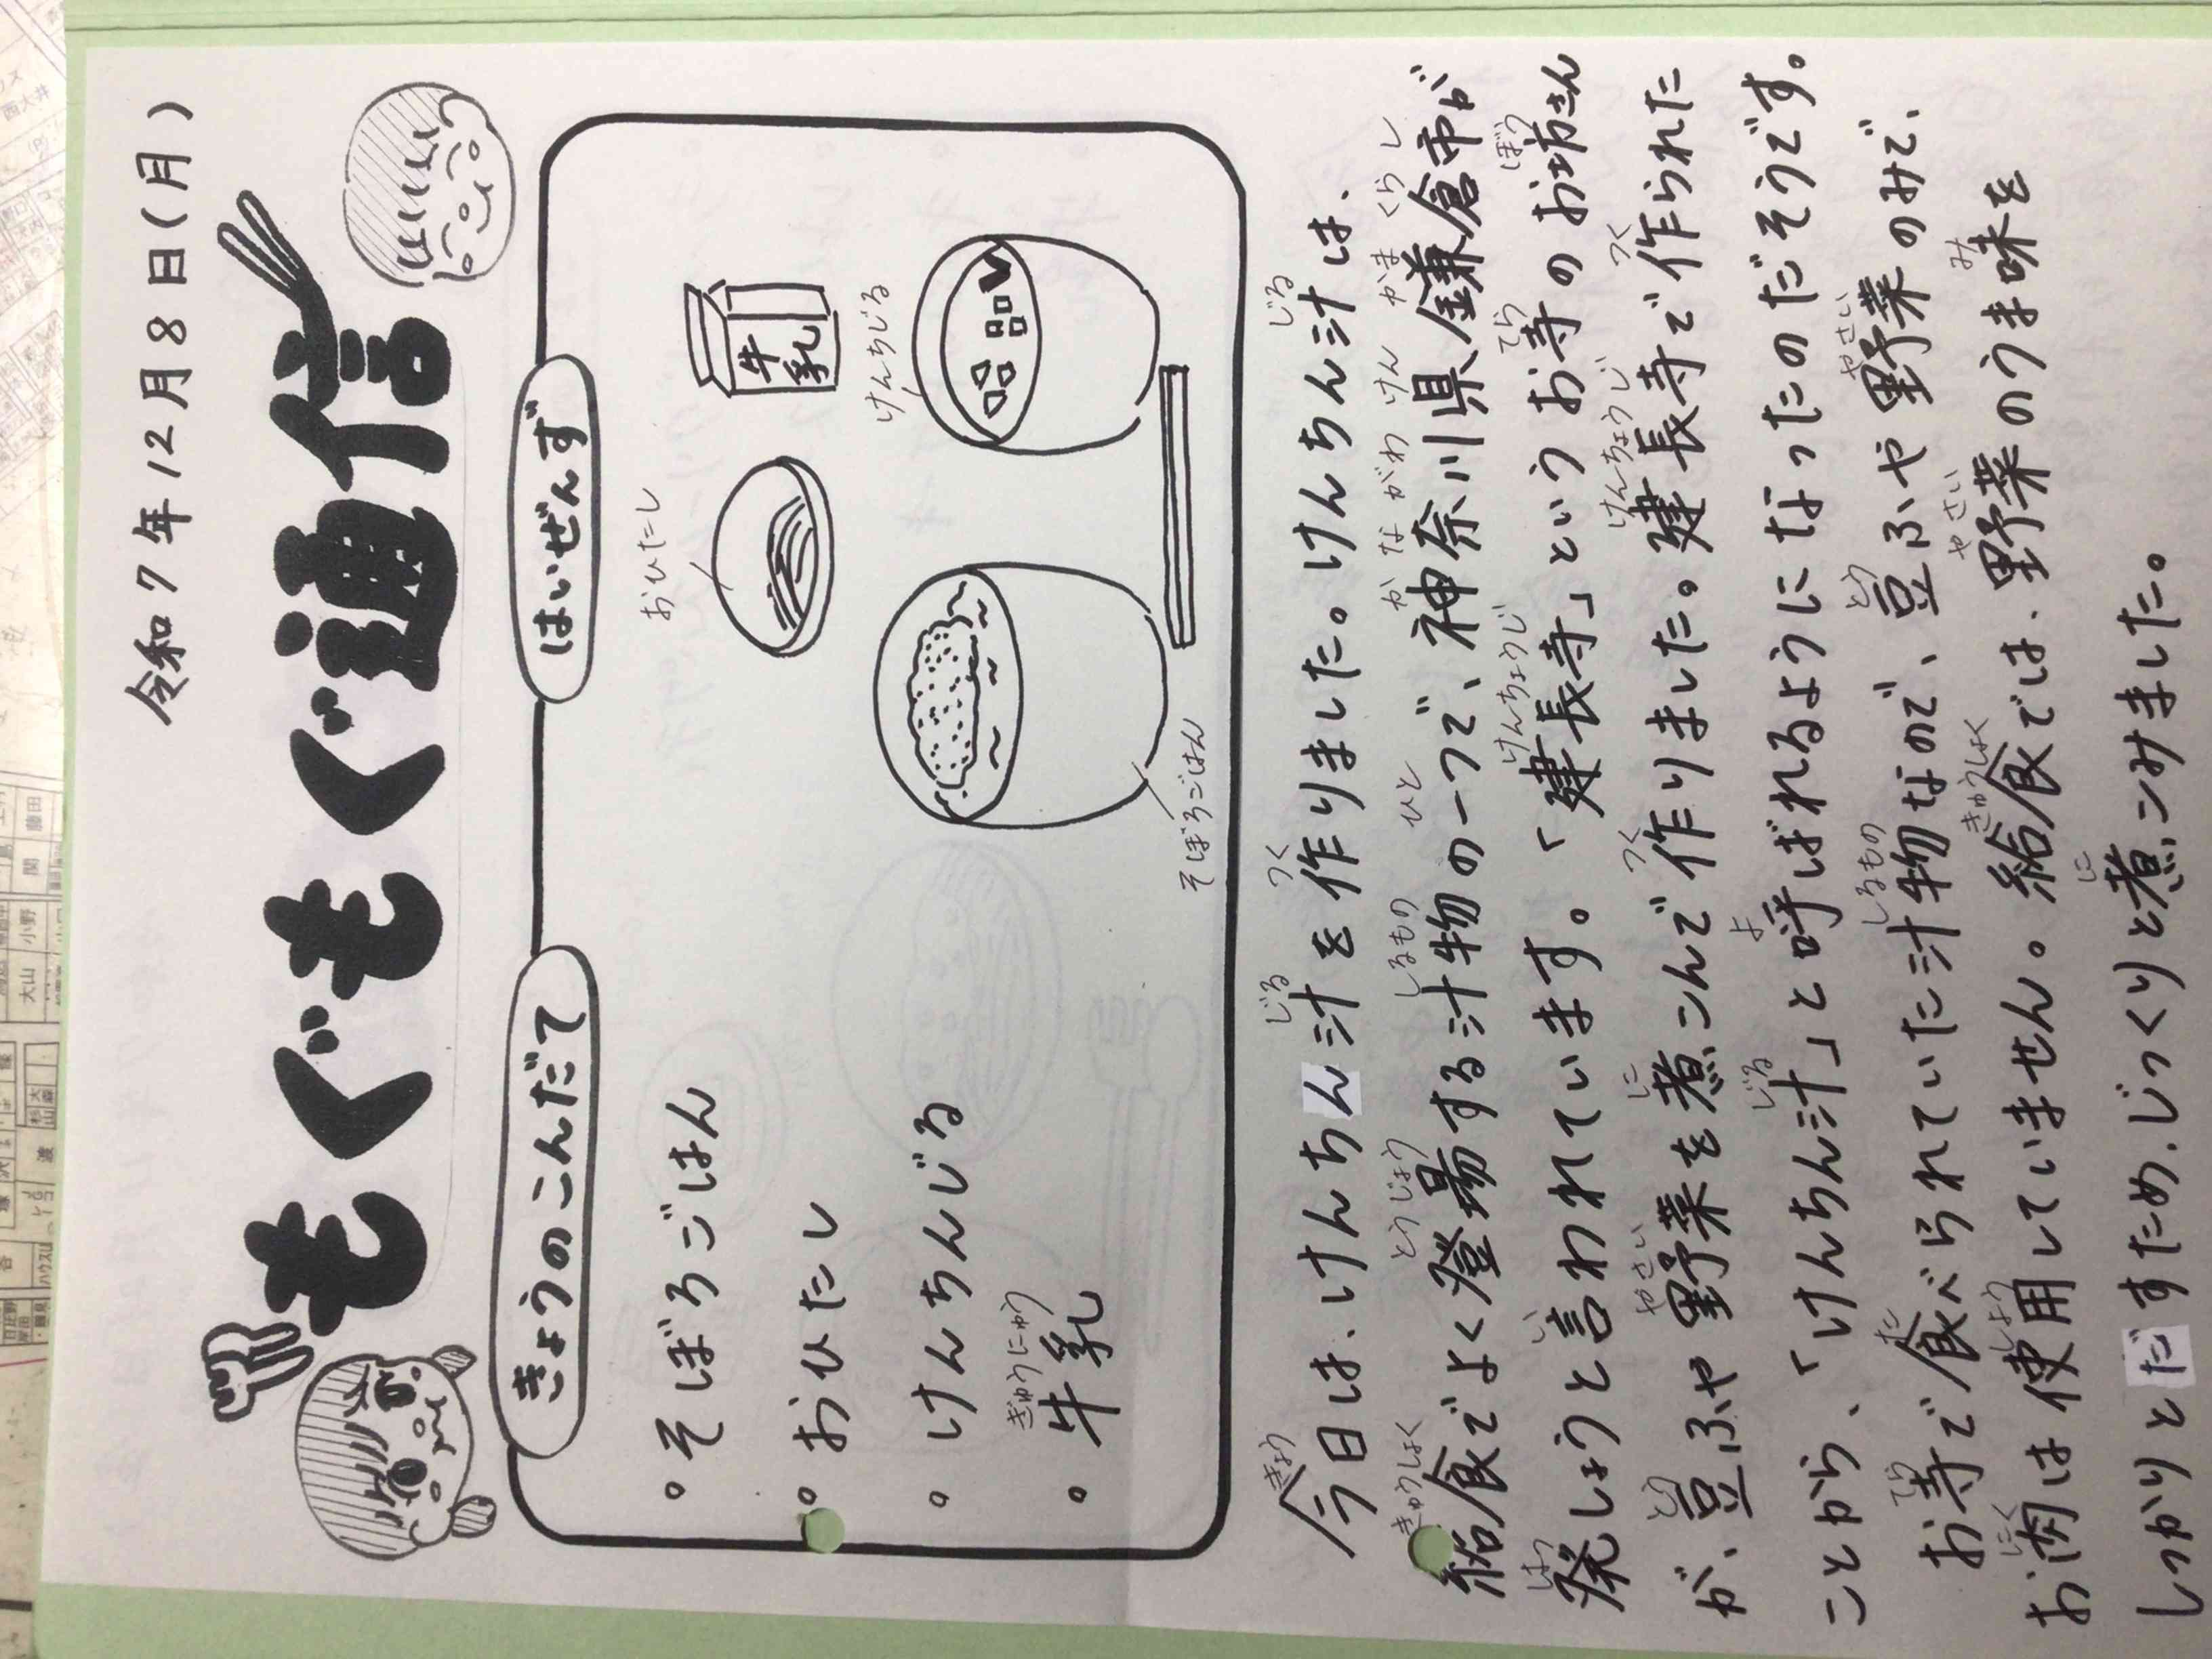 令和7年12月8日(月)
もぐもぐ通信
きょうのこんだて
。そぼろごはん
。おひたし
。けんちんじる
。牛乳
ぎゅうにゅう
はいぜんず
おひたし
牛乳
けんちんじる
そぼろごはん
今日は、けんちん汁を作りました。けんちん汁は、
給食でよく登場する汁物の一つで、神奈川県鎌倉市が
発しょうと言われています。「建長寺」というお寺のお坊さん
が、豆ふや野菜を煮こんで作りました。建長寺で作られた
ことから、「けんちん汁」と呼ばれるようになったのだそうです。
お寺で食べられていた汁物なので、豆ふや野菜のみで、
お肉は使用していません。給食では、野菜のうま味を
しっかりとだすため、じっくりと煮こみました。